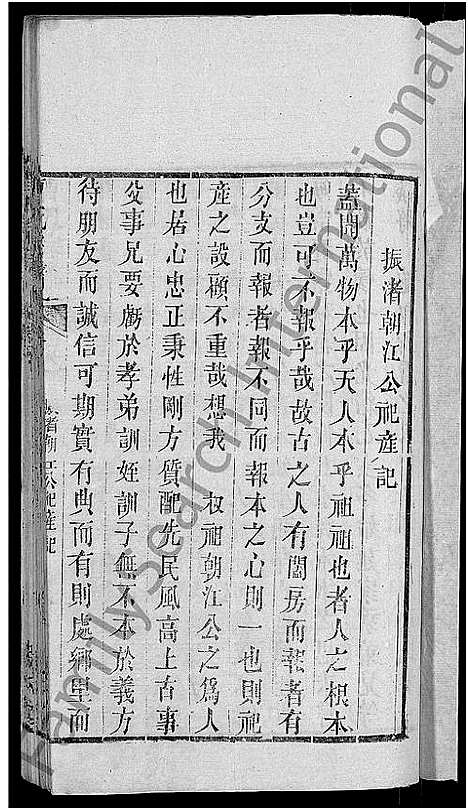 振渚朝江公祀產記
蓋聞萬物本乎天人本乎祖祖也者人之根本
也豈可不報乎哉故古之人有闔房而報者有
分支而報者報不同而報本之心則一也則祀
產之設顧不重哉想我 叔祖朝江公之為人
也居心忠正秉性剛方質配先民風高上古事
父事兄要勵於孝弟訓姪訓子無不本於義方
待朋友而誠信可期實有典而有則處鄉里而
渚朝江公祀產記
FamilySearch International